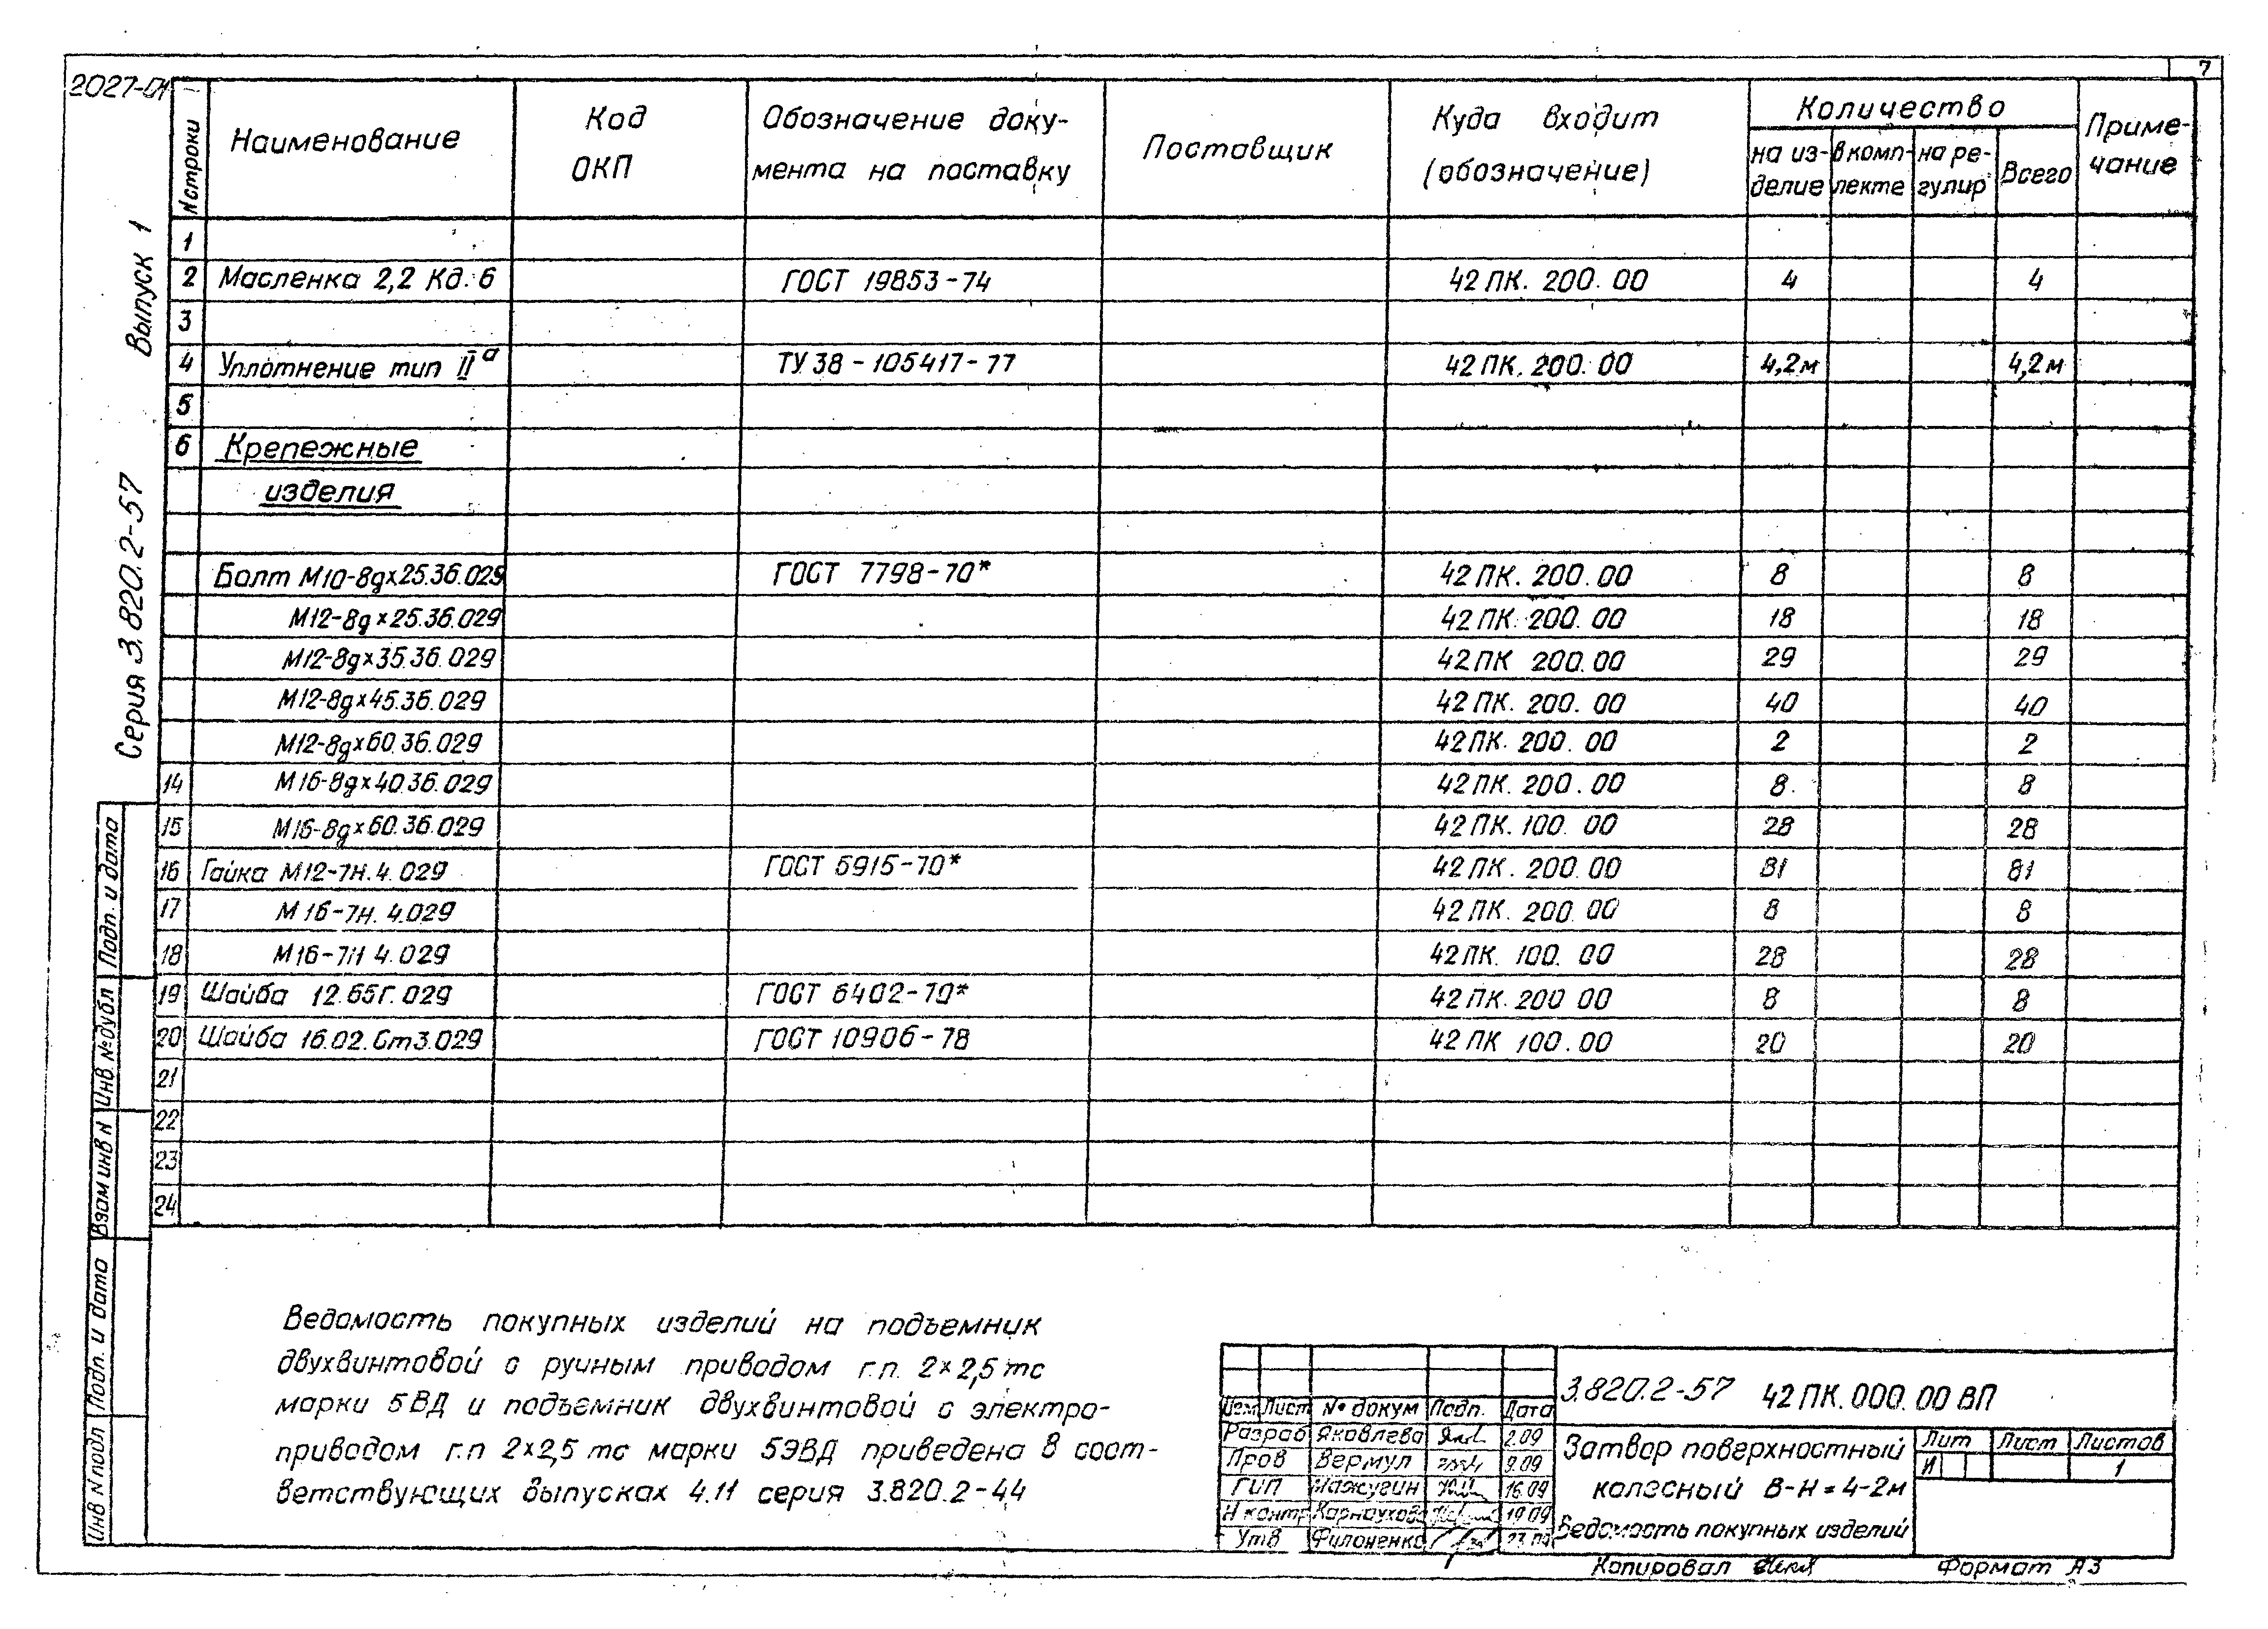 7
2027-01
Выпуск 1
Серия 3.820.2-57
N строки Наименование Код ОКП Обозначение доку- мента на поставку Поставщик Куда входит (обозначение) Количество на из- делие в комп- лекте на ре- гулир Всего Приме- чание
1
2 Масленка 2,2 Кд. 6 ГОСТ 19853-74 42 ПК. 200. 00 4 4
3
4 Уплотнение тип IIа ТУ 38-105417-77 42 ПК. 200. 00 4,2м 4,2м
5
6 Крепежные
изделия
Болт М10-8gх25.36.029 ГОСТ 7798-70* 42 ПК. 200. 00 8 8
М12-8gх25.36.029 42 ПК. 200. 00 18 18
М12-8gх35.36.029 42 ПК 200. 00 29 29
М12-8gх45.36.029 42 ПК. 200. 00 40 40
М12-8gх60.36.029 42 ПК. 200. 00 2 2
14 М16-8gх40.36.029 42 ПК. 200. 00 8 8
15 М16-8gх60.36.029 42 ПК. 100. 00 28 28
16 Гайка М12-7Н.4.029 ГОСТ 5915-70* 42 ПК. 200. 00 81 81
17 М16-7Н.4.029 42 ПК. 200. 00 8 8
18 М16-7Н 4.029 42 ПК. 100. 00 28 28
19 Шайба 12.65Г.029 ГОСТ 6402-70* 42 ПК. 200 00 8 8
20 Шайба 16.02.Ст3.029 ГОСТ 10906-78 42 ПК 100. 00 20 20
21
22
23
24
Подп. и дата
Инв. № дубл
Взам инв N
Подп. и дата
Инв N подл
Ведомость покупных изделий на подъемник
двухвинтовой с ручным приводом г.п. 2×2,5 тс
марки 5ВД и подъемник двухвинтовой с электро-
приводом г.п 2×2,5 тс марки 5ЭВД приведена в соот-
ветствующих выпусках 4.11 серия 3.820.2-44
Изм Лист № докум Подп. Дата
Разраб Яковлева 2.09
Пров Вермул 9.09
ГИП 16.09
Н контр Карнаухова 19 09
Утв Филоненко
3.820.2-57 42 ПК. 000. 00 ВП
Затвор поверхностный
колесный В-Н = 4-2м
Ведомость покупных изделий
Лит Лист Листов
И 1
Копировал Формат А3